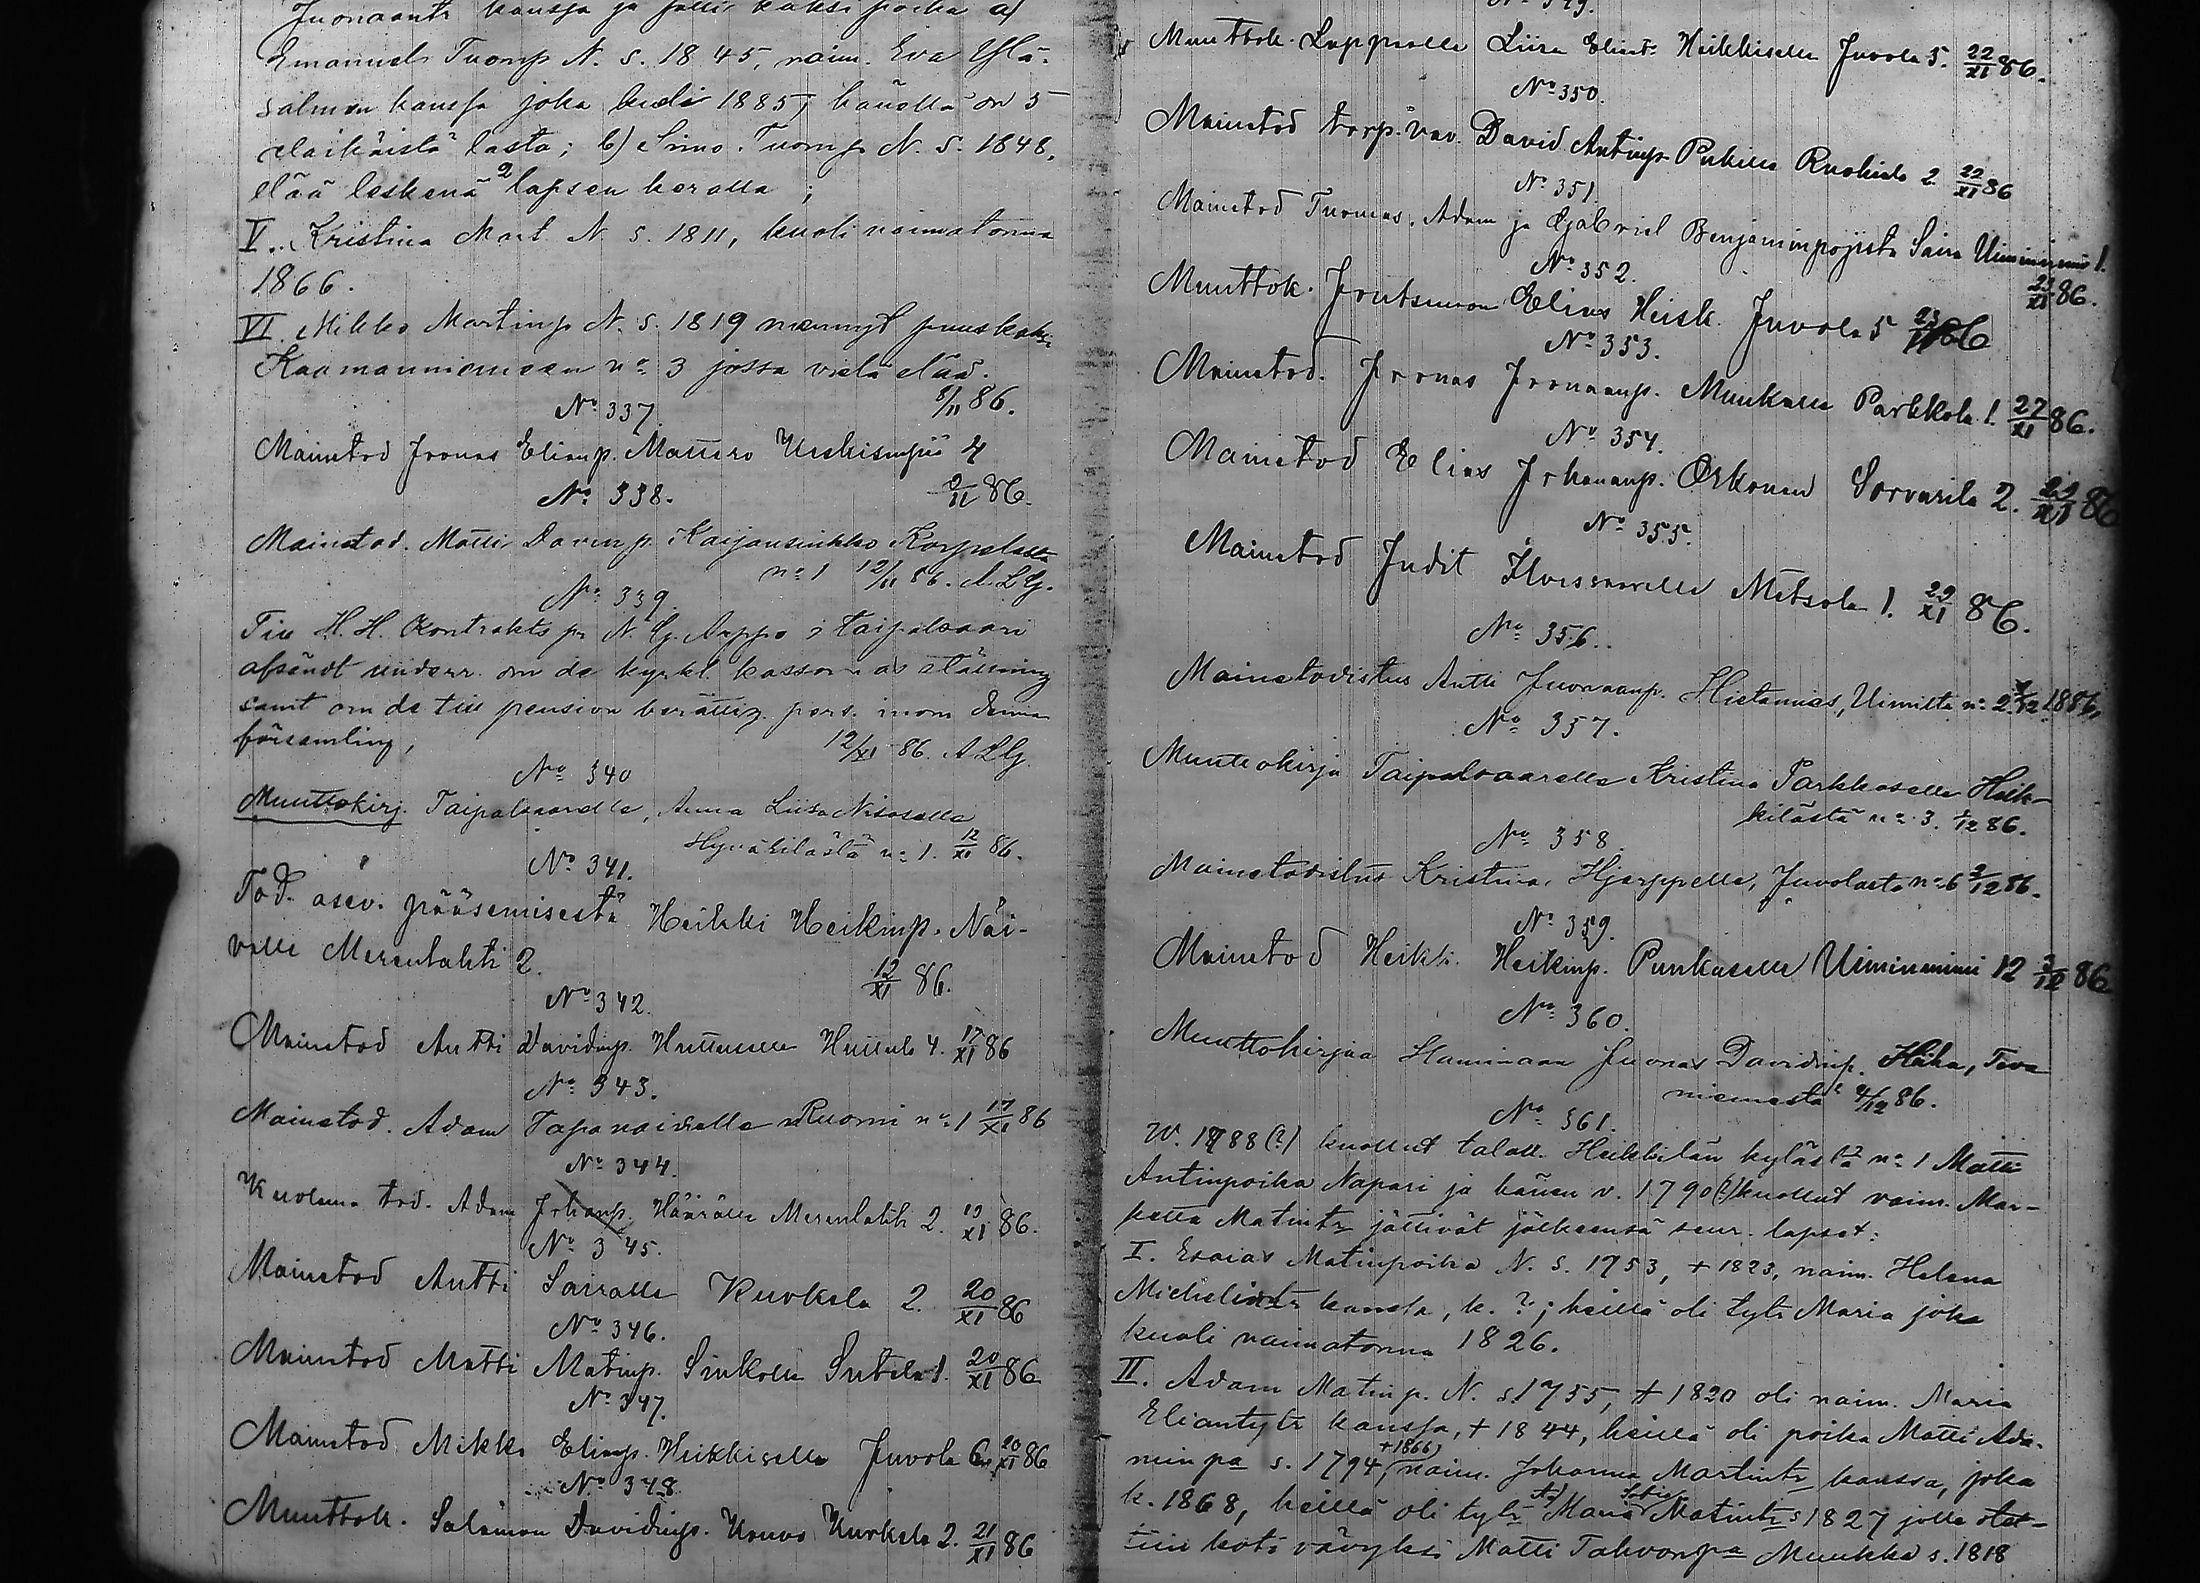 Juonaantr kanssa ja jätti kaksi poika a)
Emanuel Tuomp N. s. 1845, naim. Eva Ylä-
salmen kanssa joka kuoli 1885, hänellä on 5
alaikäistä lasta; b) Simo Tuomp N. s. 1848,
elää leskenä 2 lapsen keralla;
V. Kristina Mart. N. s. 1811, kuoli naimatonna
1866.
VI. Mikko Martinp N. s. 1819 mennyt puuskaksi
Kaamanniemeen no 3 jossa vielä elää.
No 337. 8/11 86.
Mainetod Joonas Elianp. 4
No 338. 9/11 86.
Mainetod. Matti Davinp. Korpelasta
no 1 12/11 86. A. L. G.
No 339.
Till H. H. Kontrakts pr N. G. Arppe i Taipalsaari
afsändt underr. om de kyrkl. kassornas ställning
samt om de till pension berättig. pers. inom denna
församling, 12/XI 86. A L G.
No 340
Muuttokirj. Taipalsaarelle, Anna Liisa Nisoselle
Hyvärilästä no 1. 12/XI 86.
No 341.
Tod. asev. pääsemisestä Heikki Heikinp. Näi-
välle Merenlahti 2. 12/XI 86.
No 342.
Mainetod Antti Davidinp. Huttuselle Huttula 4. 17/XI 86
No 343.
Mainetod. Adam Tapanaiselle Ruomi no 1 17/XI 86
No 344.
Kuolema tod. Adam Johanp. Häärälle Merenlahti 2. 19/XI 86.
No 345.
Mainetod Antti Sairalle Kurkela 2. 20/XI 86
No 346.
Mainetod Matti Matinp. Sinkolle Sutela 1. 20/XI 86
No 347.
Mainetod Mikko Elianp. Heikkiselle Juvola 6 20/XI 86
No 348.
Muuttok. Salomon Davidinp. Kurkela 2. 21/XI 86
No 349.
Muuttok. Lappeelle Liisa Eliantr Heikkiselle Juvola 5. 22/XI 86.
No 350.
Mainetod torp. vav. David Antinp. Pukille Ruohiala 2 22/XI 86
No 351.
Mainetod Tuomas, Adam ja Gabriel Benjaminpojista Saira Uiminniemi 1.
No 352. 23/XI 86.
Muuttok. Joutsenoon Elias Heisk. Juvola 5 23/11 86
No 353.
Mainetod. Joonas Joonaanp. Muukalle Parkkola 1. 27/XI 86.
No 354.
Mainetod Elias Johananp. Oskonen Sorvarila 2. 29/XI 86
No 355.
Mainetod Judit Metsola 1. 29/XI 86.
No 356.
Mainetodistus Antti Juonaanp. Hietamies, Uimilta no 2. 2/12 1886.
No 357.
Muuttokirja Taipalsaarelle Kristina Parkkoselle Heik-
kilästä no 3. 2/12 86.
No 358.
Mainetodistus Kristina Hjerppelle, Juvolasta no 6 3/12 86.
No 359.
Mainetod Heikki Heikinp. Punkaselle Uiminniemi 12 3/12 86
No 360.
Muuttokirjaa Haminaan Juonas Davidinp. Häkä, Teva
niemestä 4/12 86.
No 361.
W. 1788 (?) kuollut taloll. Heikkilän kylästä no 1 Matti
Antinpoika Napari ja hänen v. 1790 (?) kuollut vaim. Mar-
ketta Matintr jättivät jälkeensä seur. lapset:
I. Esaias Matinpoika N. s. 1753, + 1823, naim. Helena
Michelintr kanssa, k. ?; heillä oli tytr Maria joka
kuoli naimatonna 1826.
II. Adam Matinp. N. s 1755, + 1820 oli naim. Maria
Eliantytr kanssa, + 1844, heillä oli poika Matti Ada-
minpa s. 1794, (+1866) naim. Johanna Martintr kanssa, joka
k. 1868, heillä oli tytr Maria Sofia Matintr s 1827 jolle otet-
tiin koti vävyksi Matti Tahvonpa Muukka s. 1818